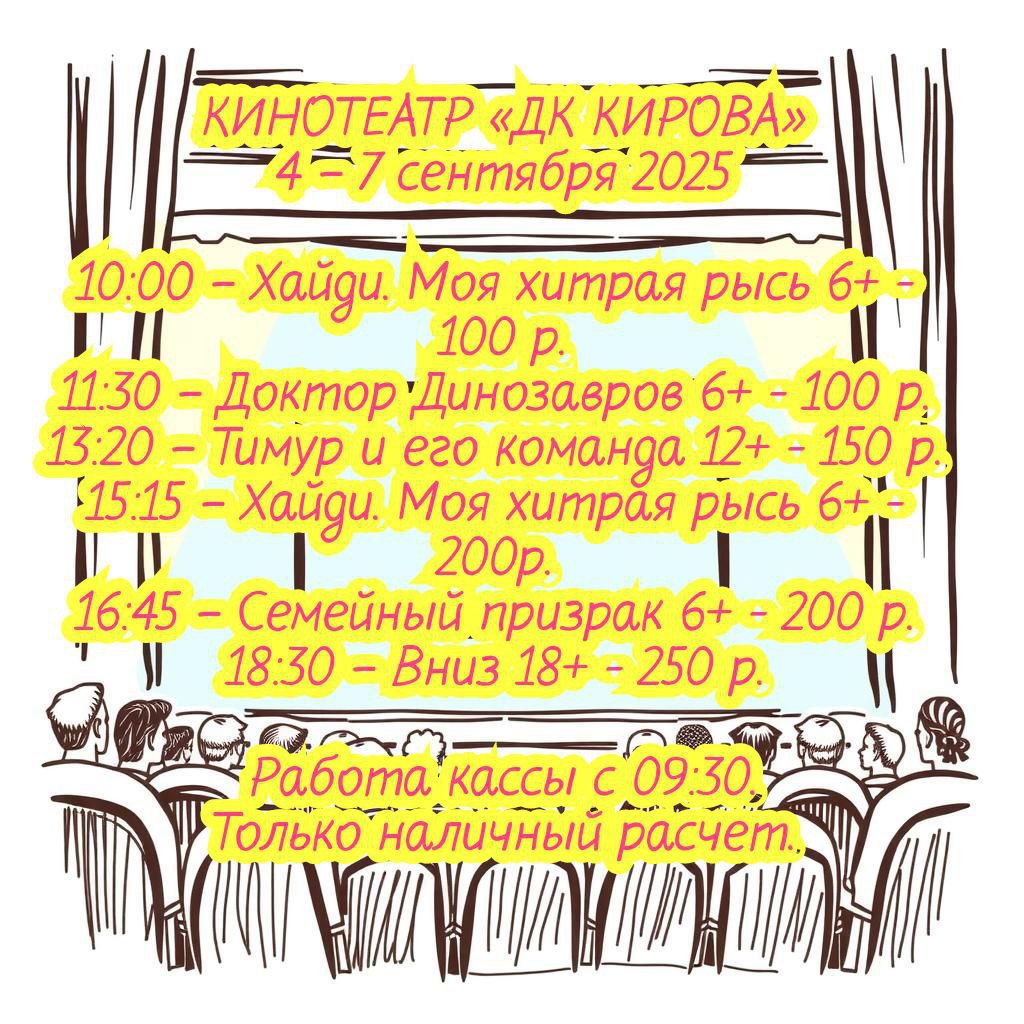 КИНОТЕАТР «ДК КИРОВА»
4 – 7 сентября 2025
10:00 – Хайди. Моя хитрая рысь 6+ -
100 р.
11:30 – Доктор Динозавров 6+ - 100 р.
13:20 – Тимур и его команда 12+ - 150 р.
15:15 – Хайди. Моя хитрая рысь 6+ -
200р.
16:45 – Семейный призрак 6+ - 200 р.
18:30 – Вниз 18+ - 250 р.
Работа кассы с 09:30.
Только наличный расчет.